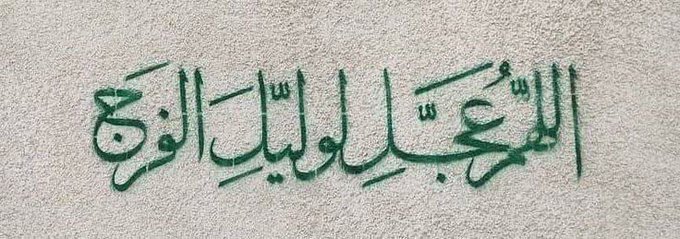 اللهّمَ عُجَّلِ لوليّكِ الفَرَجَ